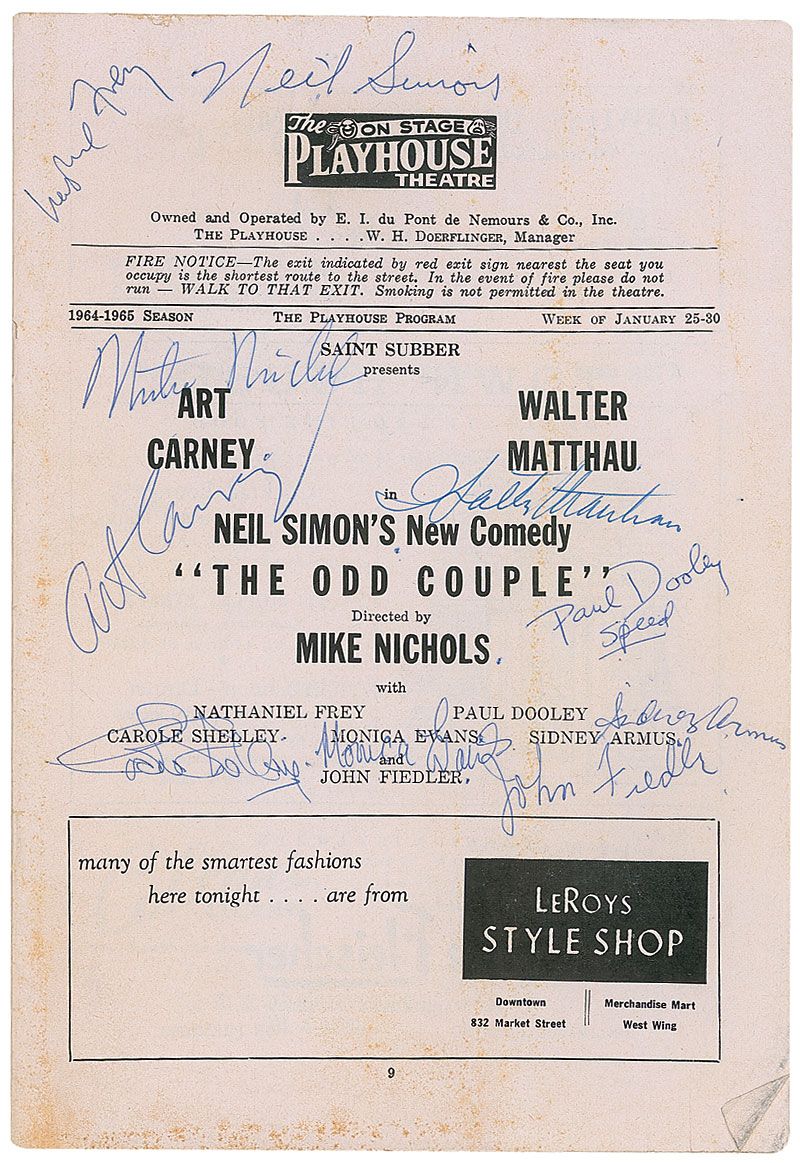 Nathaniel Frey
Neil Simon
The ON STAGE
PLAYHOUSE
THEATRE
Owned and Operated by E. I. du Pont de Nemours & Co., Inc.
THE PLAYHOUSE . . . . W. H. DOERFLINGER, Manager
FIRE NOTICE—The exit indicated by red exit sign nearest the seat you
occupy is the shortest route to the street. In the event of fire please do not
run — WALK TO THAT EXIT. Smoking is not permitted in the theatre.
1964-1965 SEASON THE PLAYHOUSE PROGRAM WEEK OF JANUARY 25-30
SAINT SUBBER
presents
Mike Nichols
ART WALTER
CARNEY MATTHAU
in
Walter Matthau
Art Carney
NEIL SIMON'S New Comedy
"THE ODD COUPLE"
Directed by
Paul Dooley
Speed
MIKE NICHOLS
with
NATHANIEL FREY PAUL DOOLEY
Sidney Armus
CAROLE SHELLEY MONICA EVANS SIDNEY ARMUS
Carole Shelley Monica Evans
and
John Fiedler
JOHN FIEDLER
many of the smartest fashions
here tonight . . . . are from
LEROYS
STYLE SHOP
Downtown Merchandise Mart
832 Market Street West Wing
9